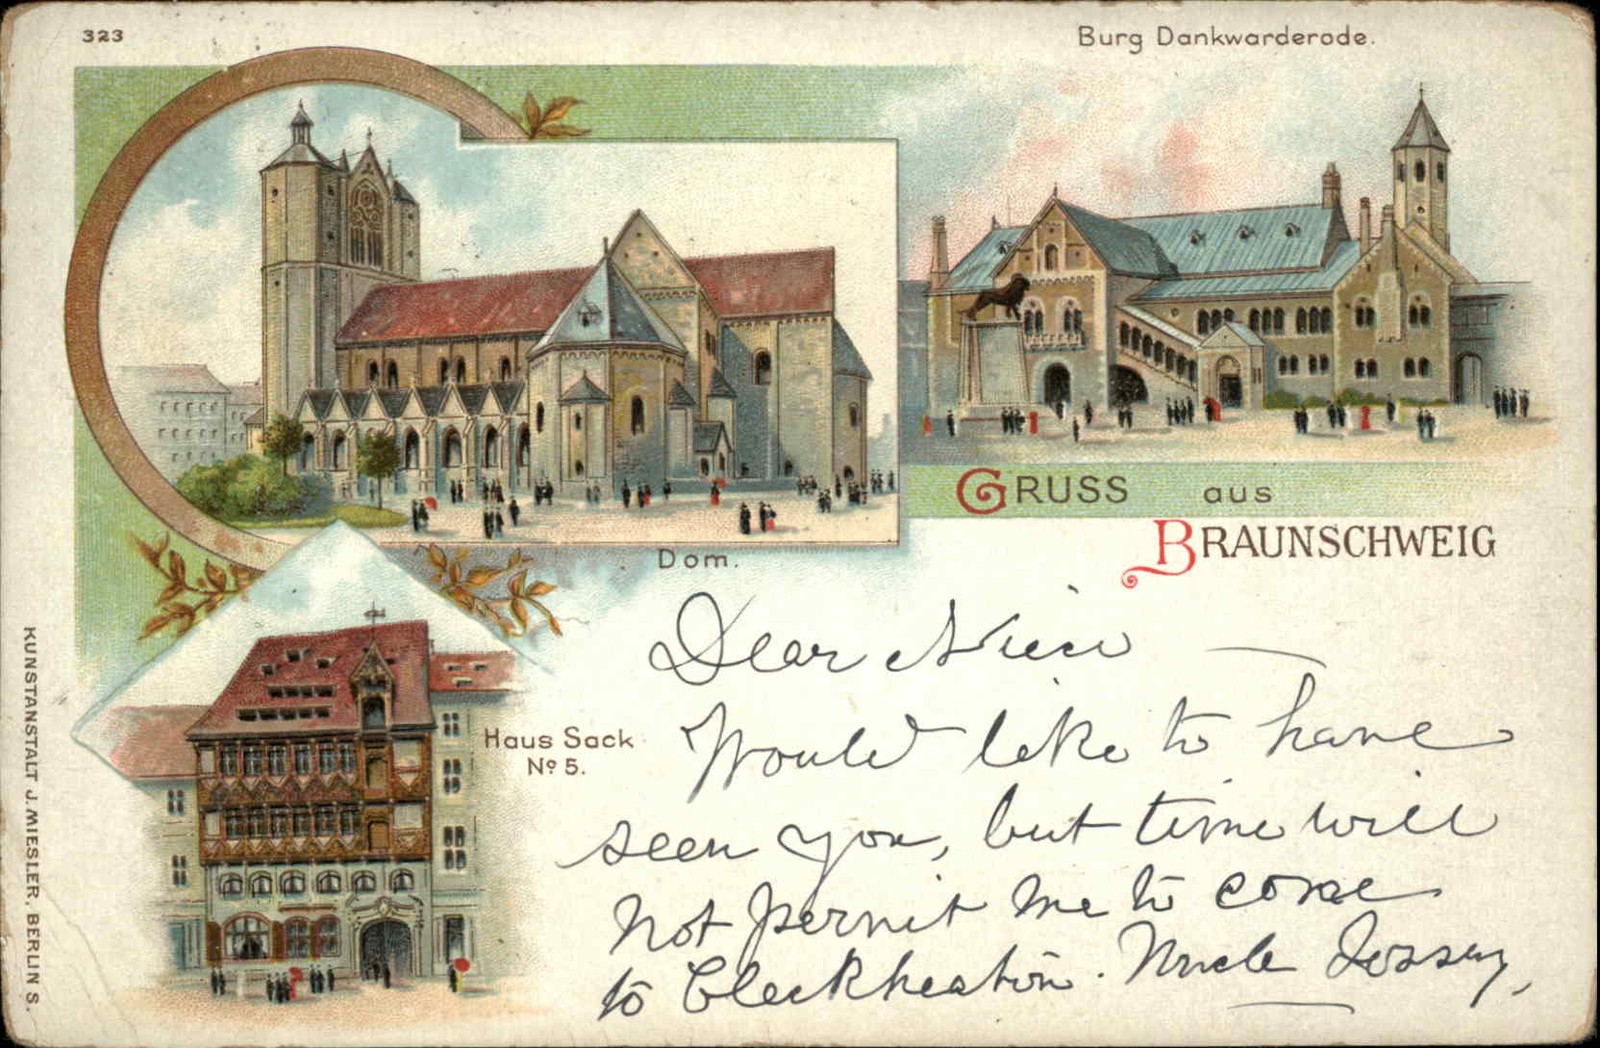 323
Burg Dankwarderode.
GRUSS aus
BRAUNSCHWEIG
Dom.
Haus Sack
No 5.
KUNSTANSTALT J. MIESLER, BERLIN S.
Dear Niece
Would like to have
seen you, but time will
not permit me to come
to Cleckheaton. Uncle